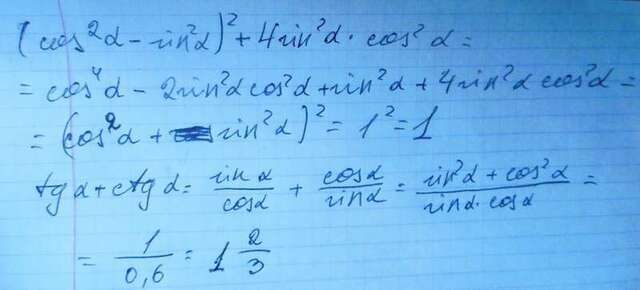 (cos²α - sin²α)² + 4sin²α · cos²α =
= cos⁴α - 2sin²α cos²α + sin²α + 4sin²α cos²α =
= (cos²α + sin²α)² = 1² = 1
tg α + ctg α = sin α/cos α + cos α/sin α = (sin²α + cos²α)/(sin α · cos α) =
= 1/0,6 = 1 2/3